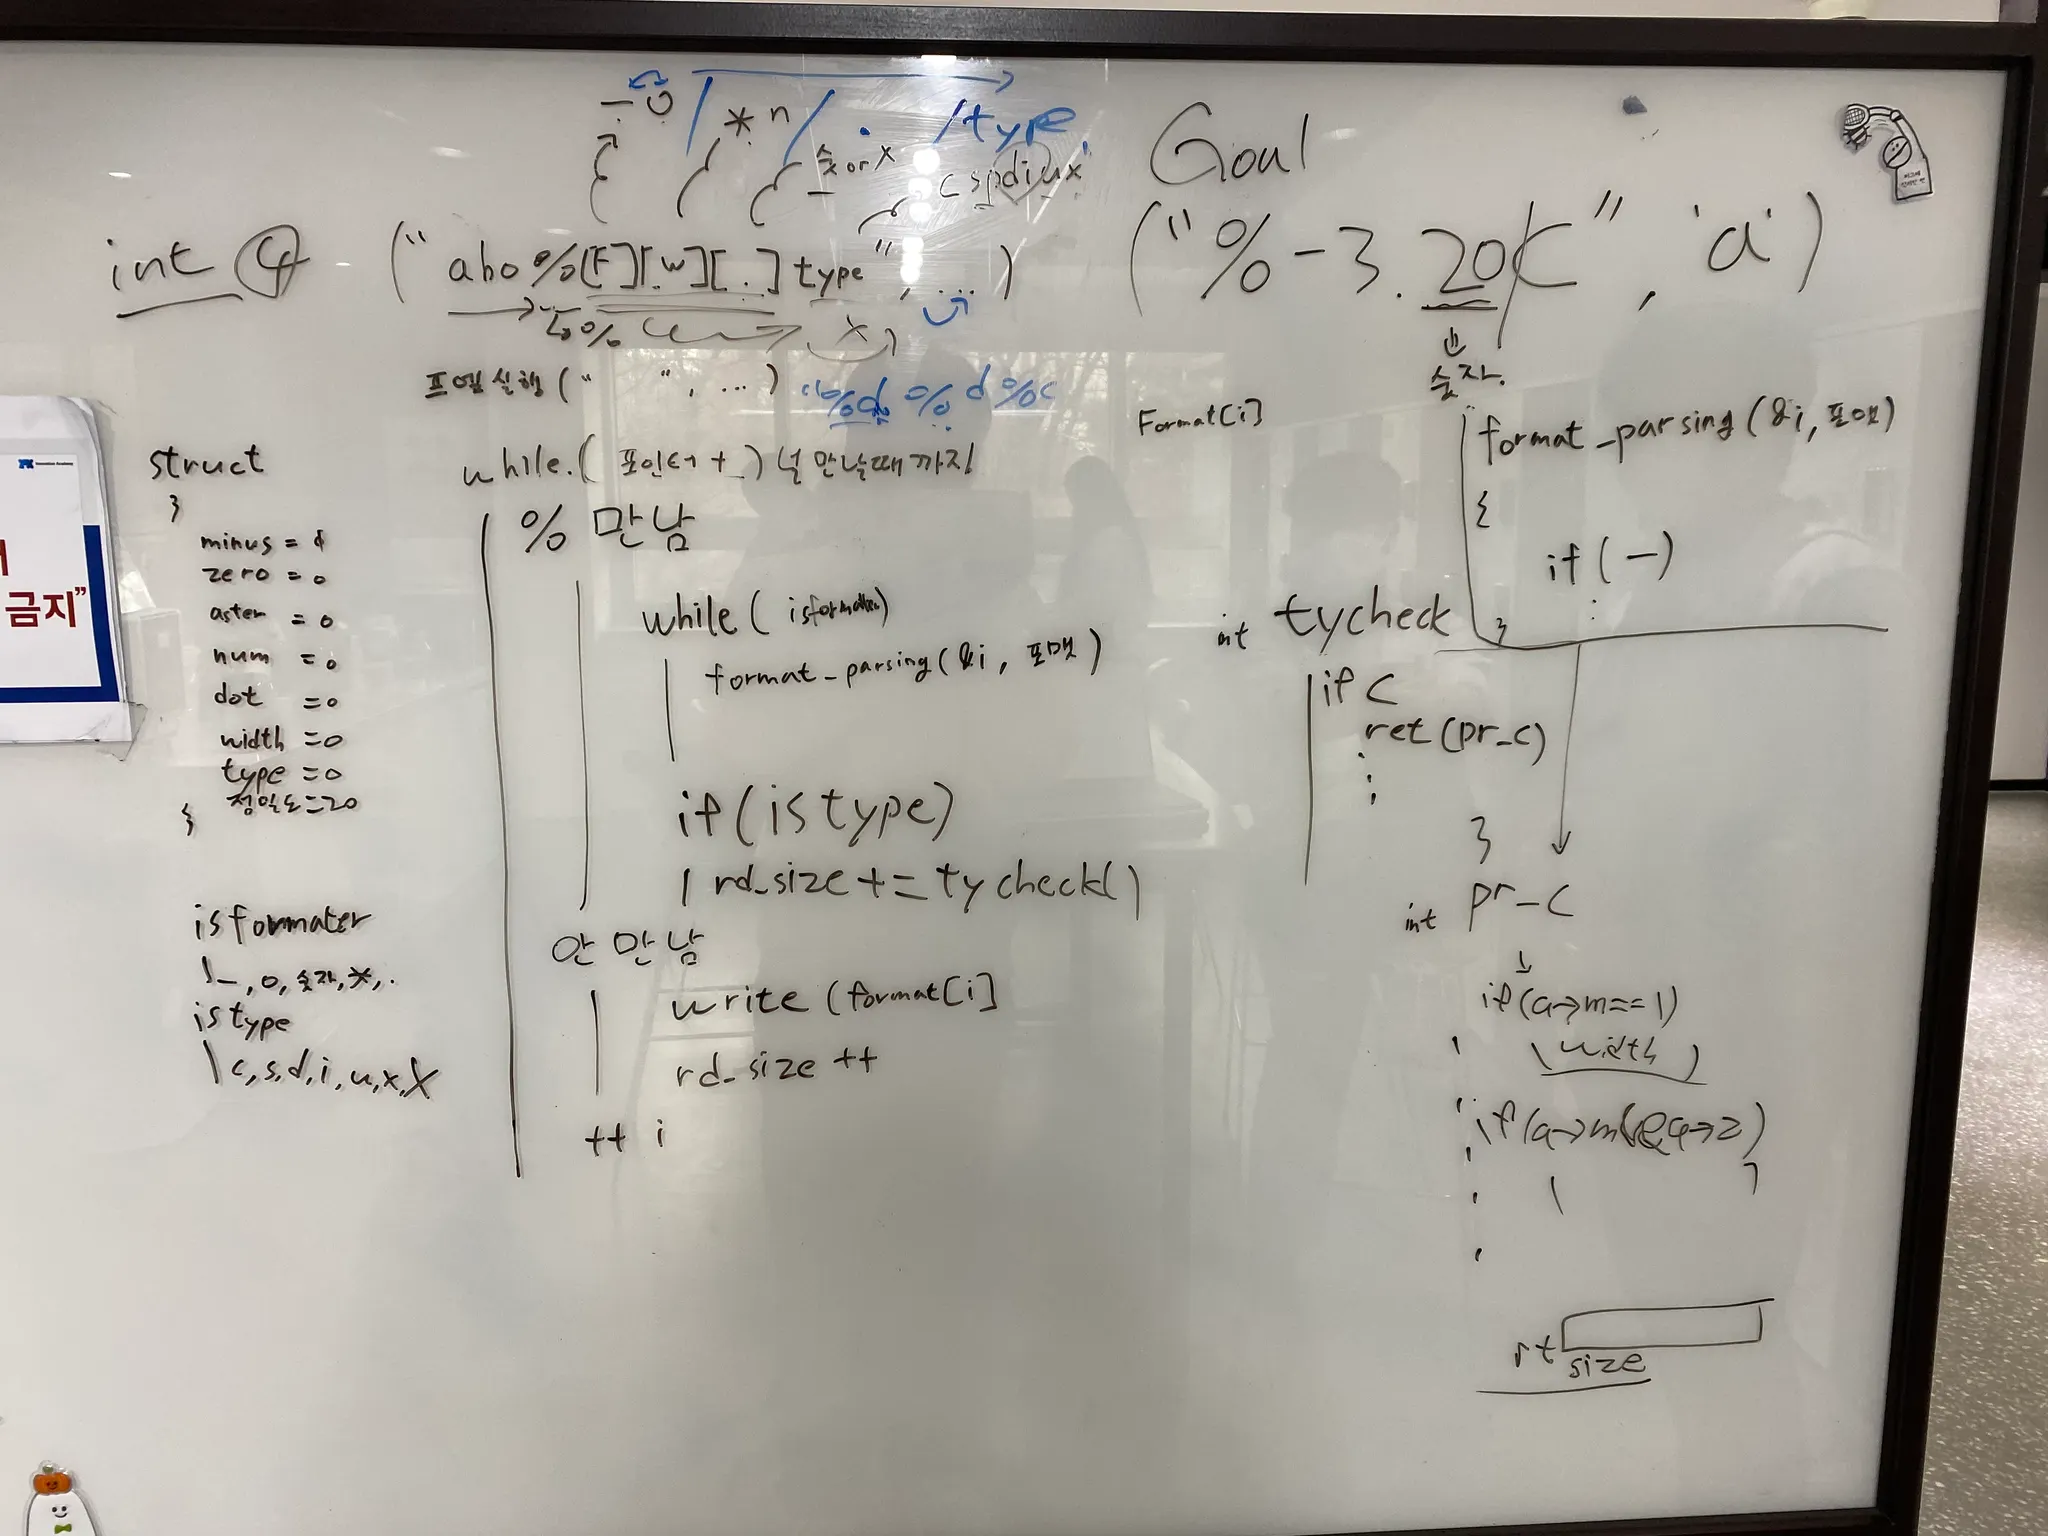 - 0 / * n / . /type
숫 or X
c spdiux
Goal
int ("abo%[F][w][.]type", ....)
("%-3.20c", 'a')
%
숫자.
프엪실행(" ", ...) "%d %d %c
Format[i]
format_parsing(&i, 포맷)
{
if(-)
}
struct
}
minus =
zero = 0
aster = 0
num = 0
dot = 0
width = 0
type = 0
정밀도=20
{
while.(포인터+_) 널만날때까지
% 만남
while( isformater)
format_parsing(&i, 포맷)
if(istype)
rd_size += tycheck()
안 만남
write (format[i]
rd_size ++
++ i
isformater
-, 0, 숫자, *, .
istype
c, s, d, i, u, x, X
int tycheck
if c
ret(pr_c)
}
int pr_c
if(a→m==1)
width
if(a→m a→z)
rt
size
Innovation Academy
금지"